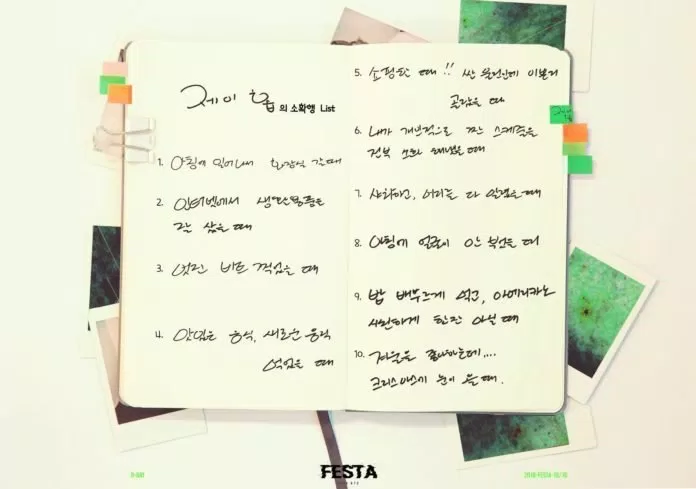 제이홉의 소확행 List
1. 아침에 일어나서 화장실 갈 때
2. 인터넷에서 생필품들을
잘 샀을 때
3. 멋진 바로 찍었을 때
4. 맛있는 음식, 새로운 음식
먹었을 때
5. 쇼핑할 때!! 싼 물건인데 이쁜거
골랐을 때
6. 내가 개인적으로 짠 스케줄을
전부 소화 해냈을 때
7. 샤워하고, 머리를 다 말렸을 때
8. 아침에 얼굴이 안 부었을 때
9. 밥 배부르게 먹고, 아메리카노
시원하게 한잔 마실 때
10. 겨울을 좋아하는데....
크리스마스에 눈이 올 때.
FESTA